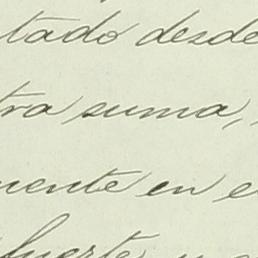 tado desde
tra suma,
mente en e
fuerte y